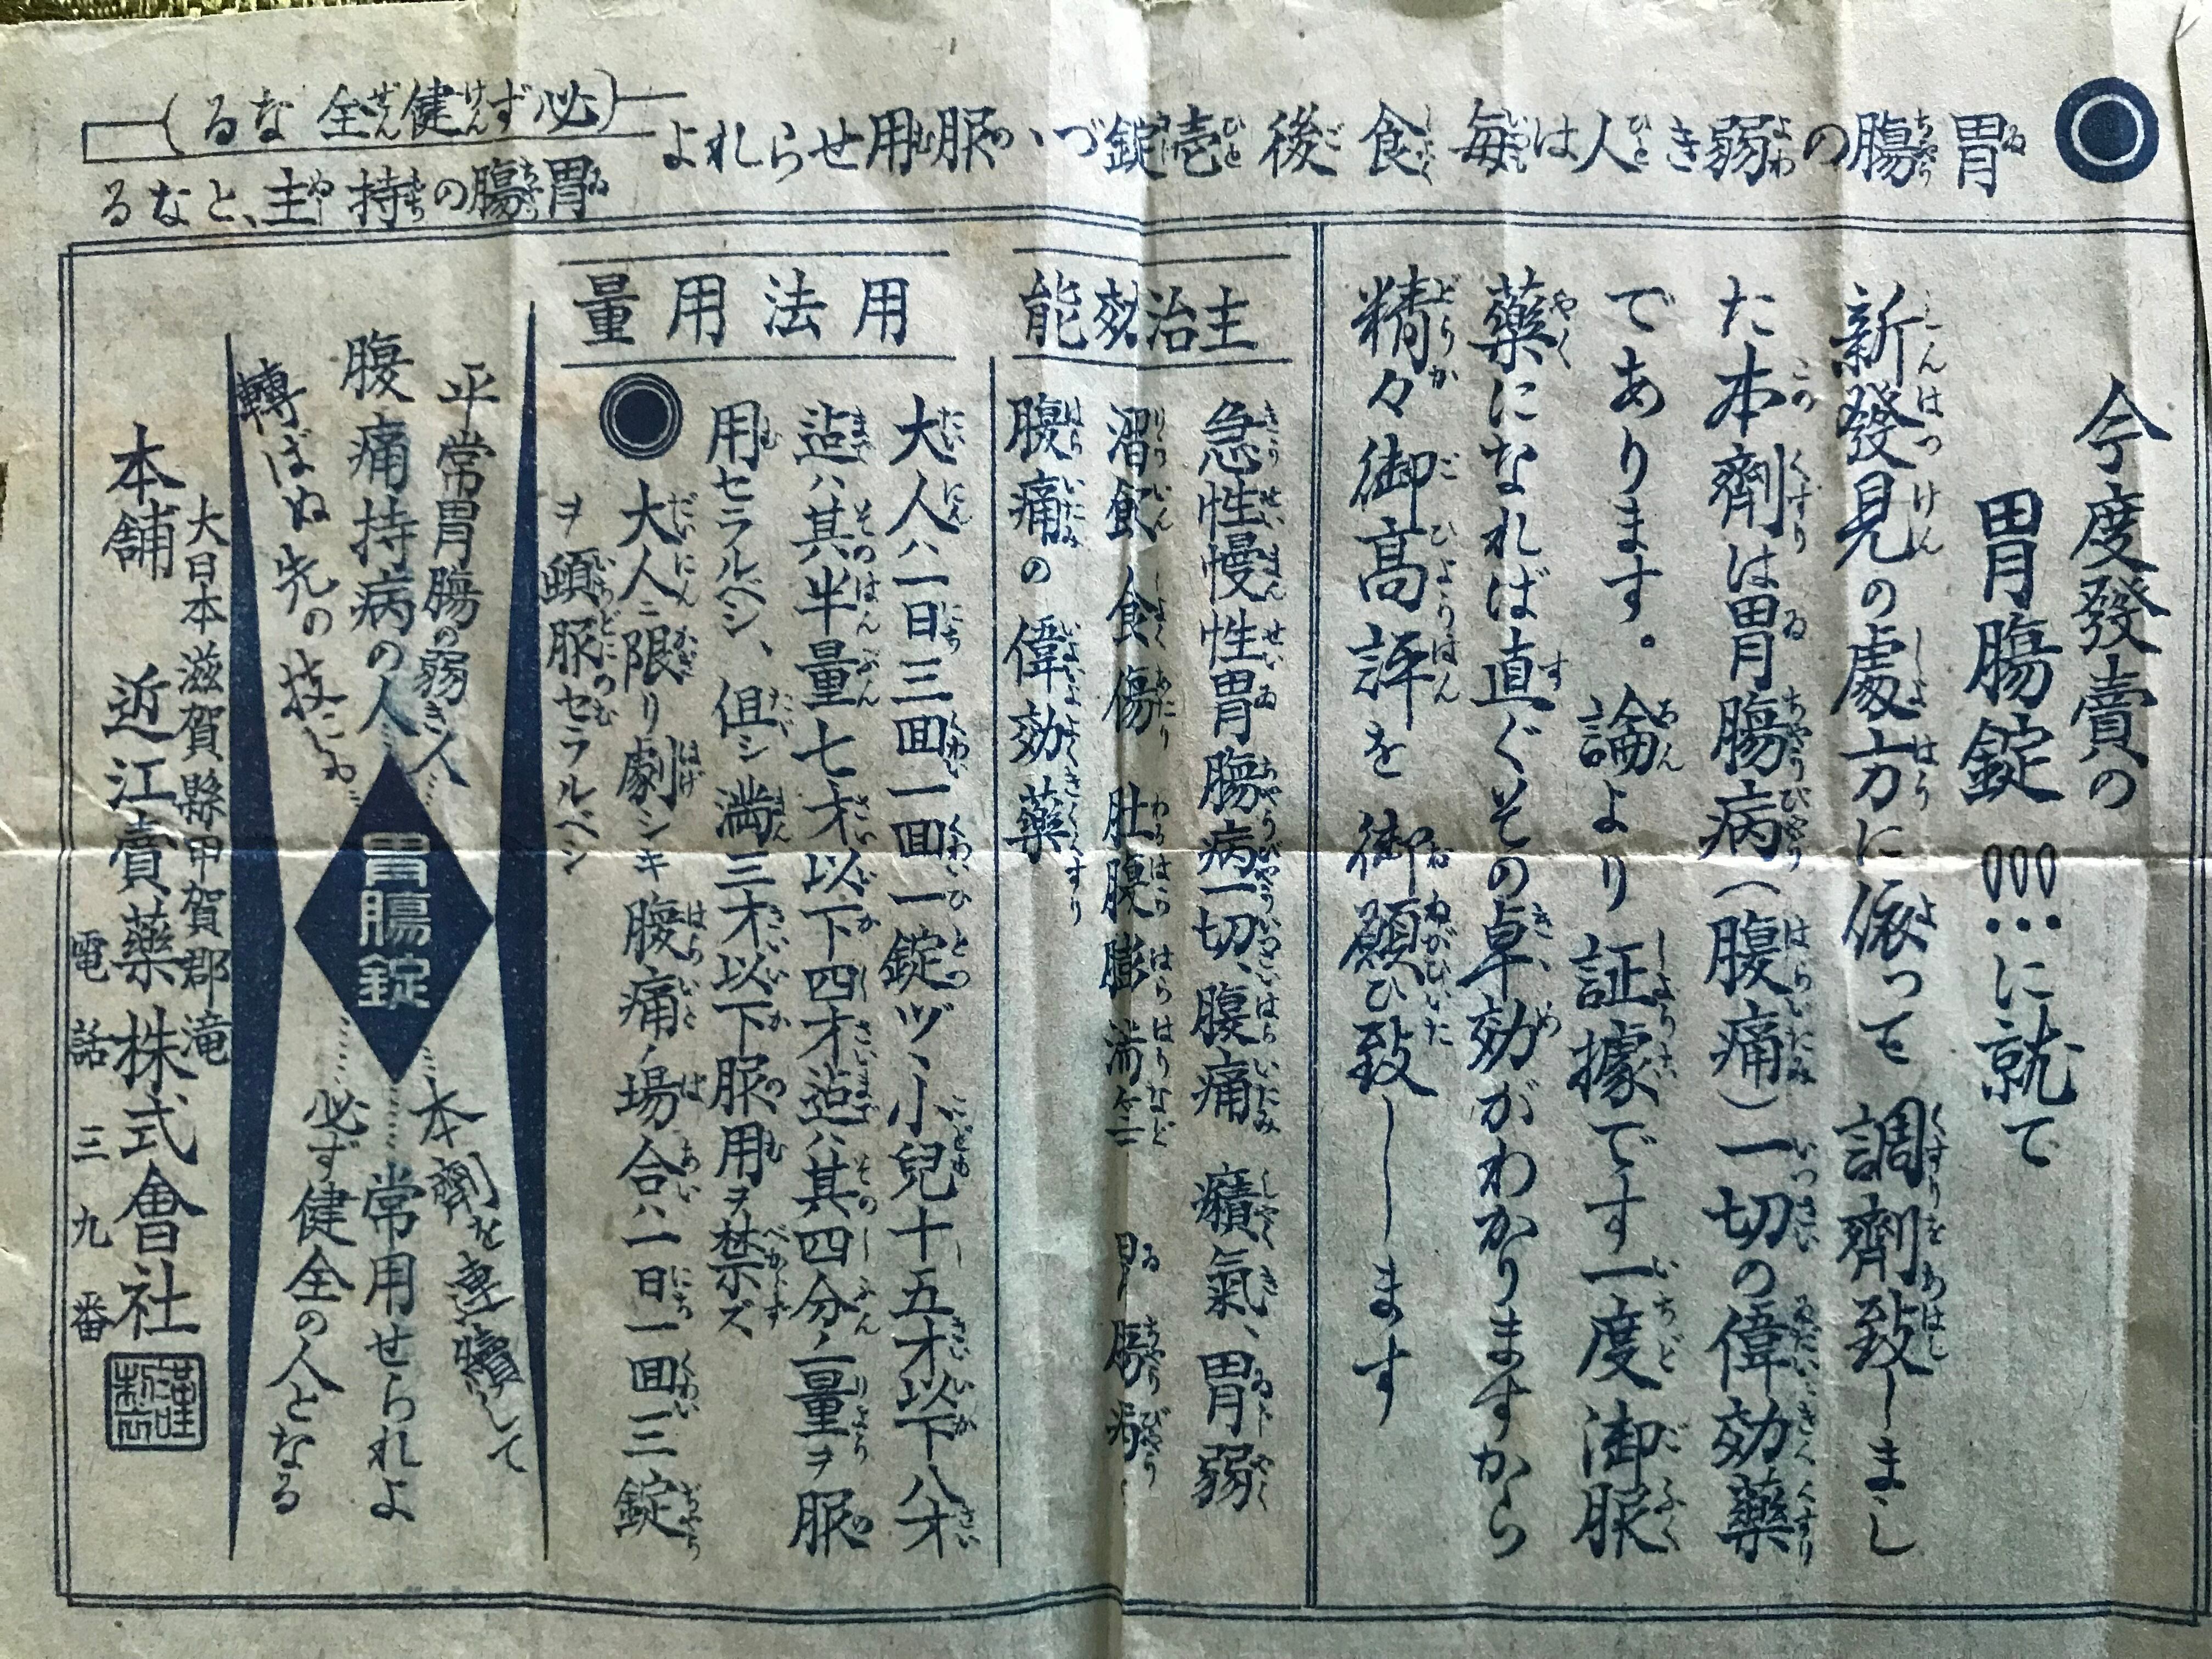 胃腸の弱き人は毎食後壱錠づゝ服用せられよ
(必ず健全なる)
胃腸の持主となる
今度發賣の
胃腸錠に就て
新發見の處方に依って調劑致しまし
た本劑は胃腸病(腹痛)一切の偉効藥
であります。論より証據です一度御服
藥になれば直ぐその卓効がわかりますから
精々御高評を御願ひ致します
主治効能
急性慢性胃腸病一切、腹痛 癪氣、胃弱
溜飲 食傷 肚腹膨満
腹痛の偉効藥
用法用量
大人ハ一日三回一回一錠ヅヽ小兒十五才以下八才
迠ハ其半量七才以下四才迠ハ其四分ノ一量ヲ服
用セラルベシ、但シ満三才以下服用ヲ禁ズ
大人ニ限リ劇シキ腹痛ノ場合ハ一日一回三錠
ヲ頓服セラルベシ
平常胃腸の弱き人
本劑を連續して
腹痛持病の人
常用せられよ
轉ばぬ先の技にゐ
必ず健全の人となる
胃腸錠
大日本滋賀縣甲賀郡滝
本舗 近江賣藥株式會社
電話三九番